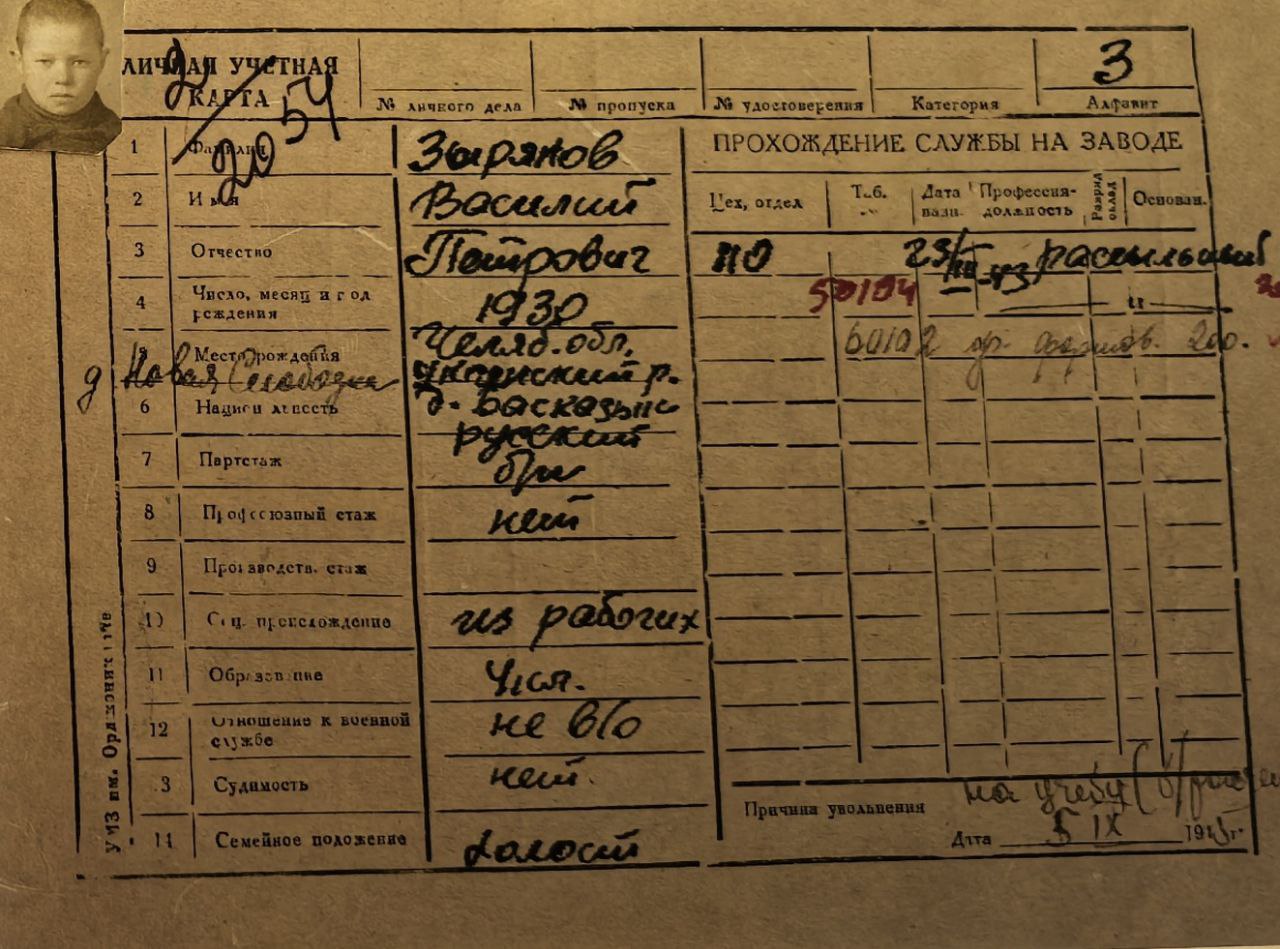 ЛИЧНАЯ УЧЕТНАЯ КАРТА
2/2054
№ личного дела
№ пропуска
№ удостоверения
Категория
З
Алфавит
1 Фамилия Зырянов
2 Имя Василий
3 Отчество Петрович
4 Число, месяц и год рождения 1930
5 Место рождения Челяб. обл.
д Новая Слободка
д. Басказык
6 Национальность русский
7 Партстаж б/п
8 Профсоюзный стаж нет
9 Производств. стаж
10 Соц. происхождение из рабочих
11 Образование 4 кл.
12 Отношение к военной службе не в/о
13 Судимость нет.
14 Семейное положение холост
ПРОХОЖДЕНИЕ СЛУЖБЫ НА ЗАВОДЕ
Цех, отдел
Таб. №
Дата назн.
Профессия-должность
Разряд оклад
Основан.
по 23/III-43 рассыльный
50104 —"—
60102 200.
Причина увольнения на учебу
Дата 5 IX 1945 г.
УМЗ им. Орджоникидзе